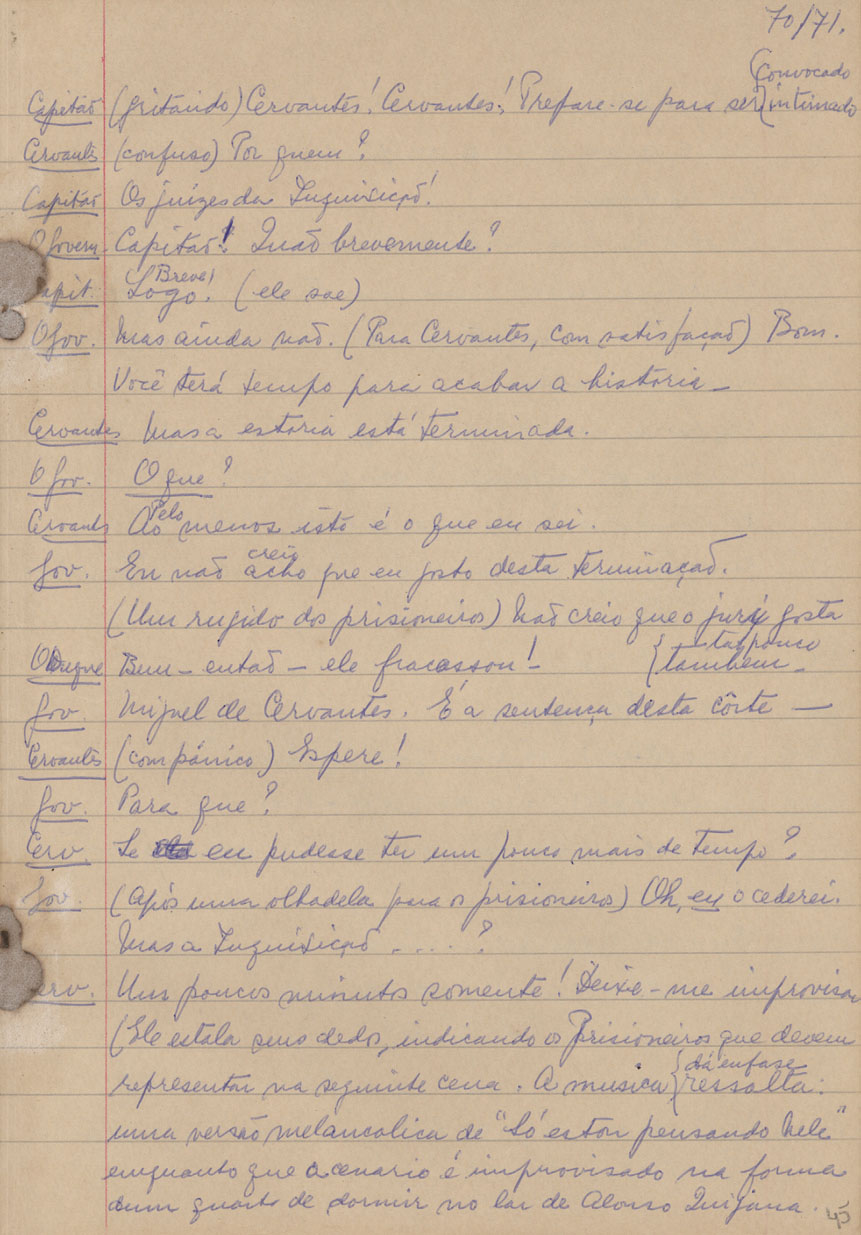 70/71.
{Convocado
Capitão (gritando) Cervantes! Cervantes! Prepare-se para ser {intimado
Cervantes (confuso) Por quem?
Capitão Os juízes da Inquisição!
O Govern. Capitão! Quão brevemente?
Breve!
Capit. Logo! (ele sae)
O Gov. Mas ainda não. (Para Cervantes, com satisfação) Bom.
Você terá tempo para acabar a história —
Cervantes Mas a estoria está terminada.
O Gov. O que?
Pelo
Cervants Ao menos isto é o que eu sei.
creio
Gov. Eu não acho que eu gosto desta terminação.
(Um rugido dos prisioneiros) Não creio que o jury gosta
tampouco
O Duque Bem — então — ele fracassou! — {também —
Gov. Miguel de Cervantes. É a sentença desta côrte —
Cervantes (com pânico) Espere!
Gov. Para que?
Cerv. Se eu pudesse ter um pouco mais de tempo?
Gov. (Após uma olhadela para os prisioneiros) Oh, eu o cederei.
Mas a Inquisição ....?
Cerv. Uns poucos minutos somente! Deixe-me improvisar
(Ele estala seus dedos, indicando os Prisioneiros que devem
{dá enfase
representar na seguinte cena. A musica {ressalta:
uma versão melancolica de "Só estou pensando Nele"
enquanto que o cenario é improvisado na forma
dum quarto de dormir no lar de Alonso Quijana.
45